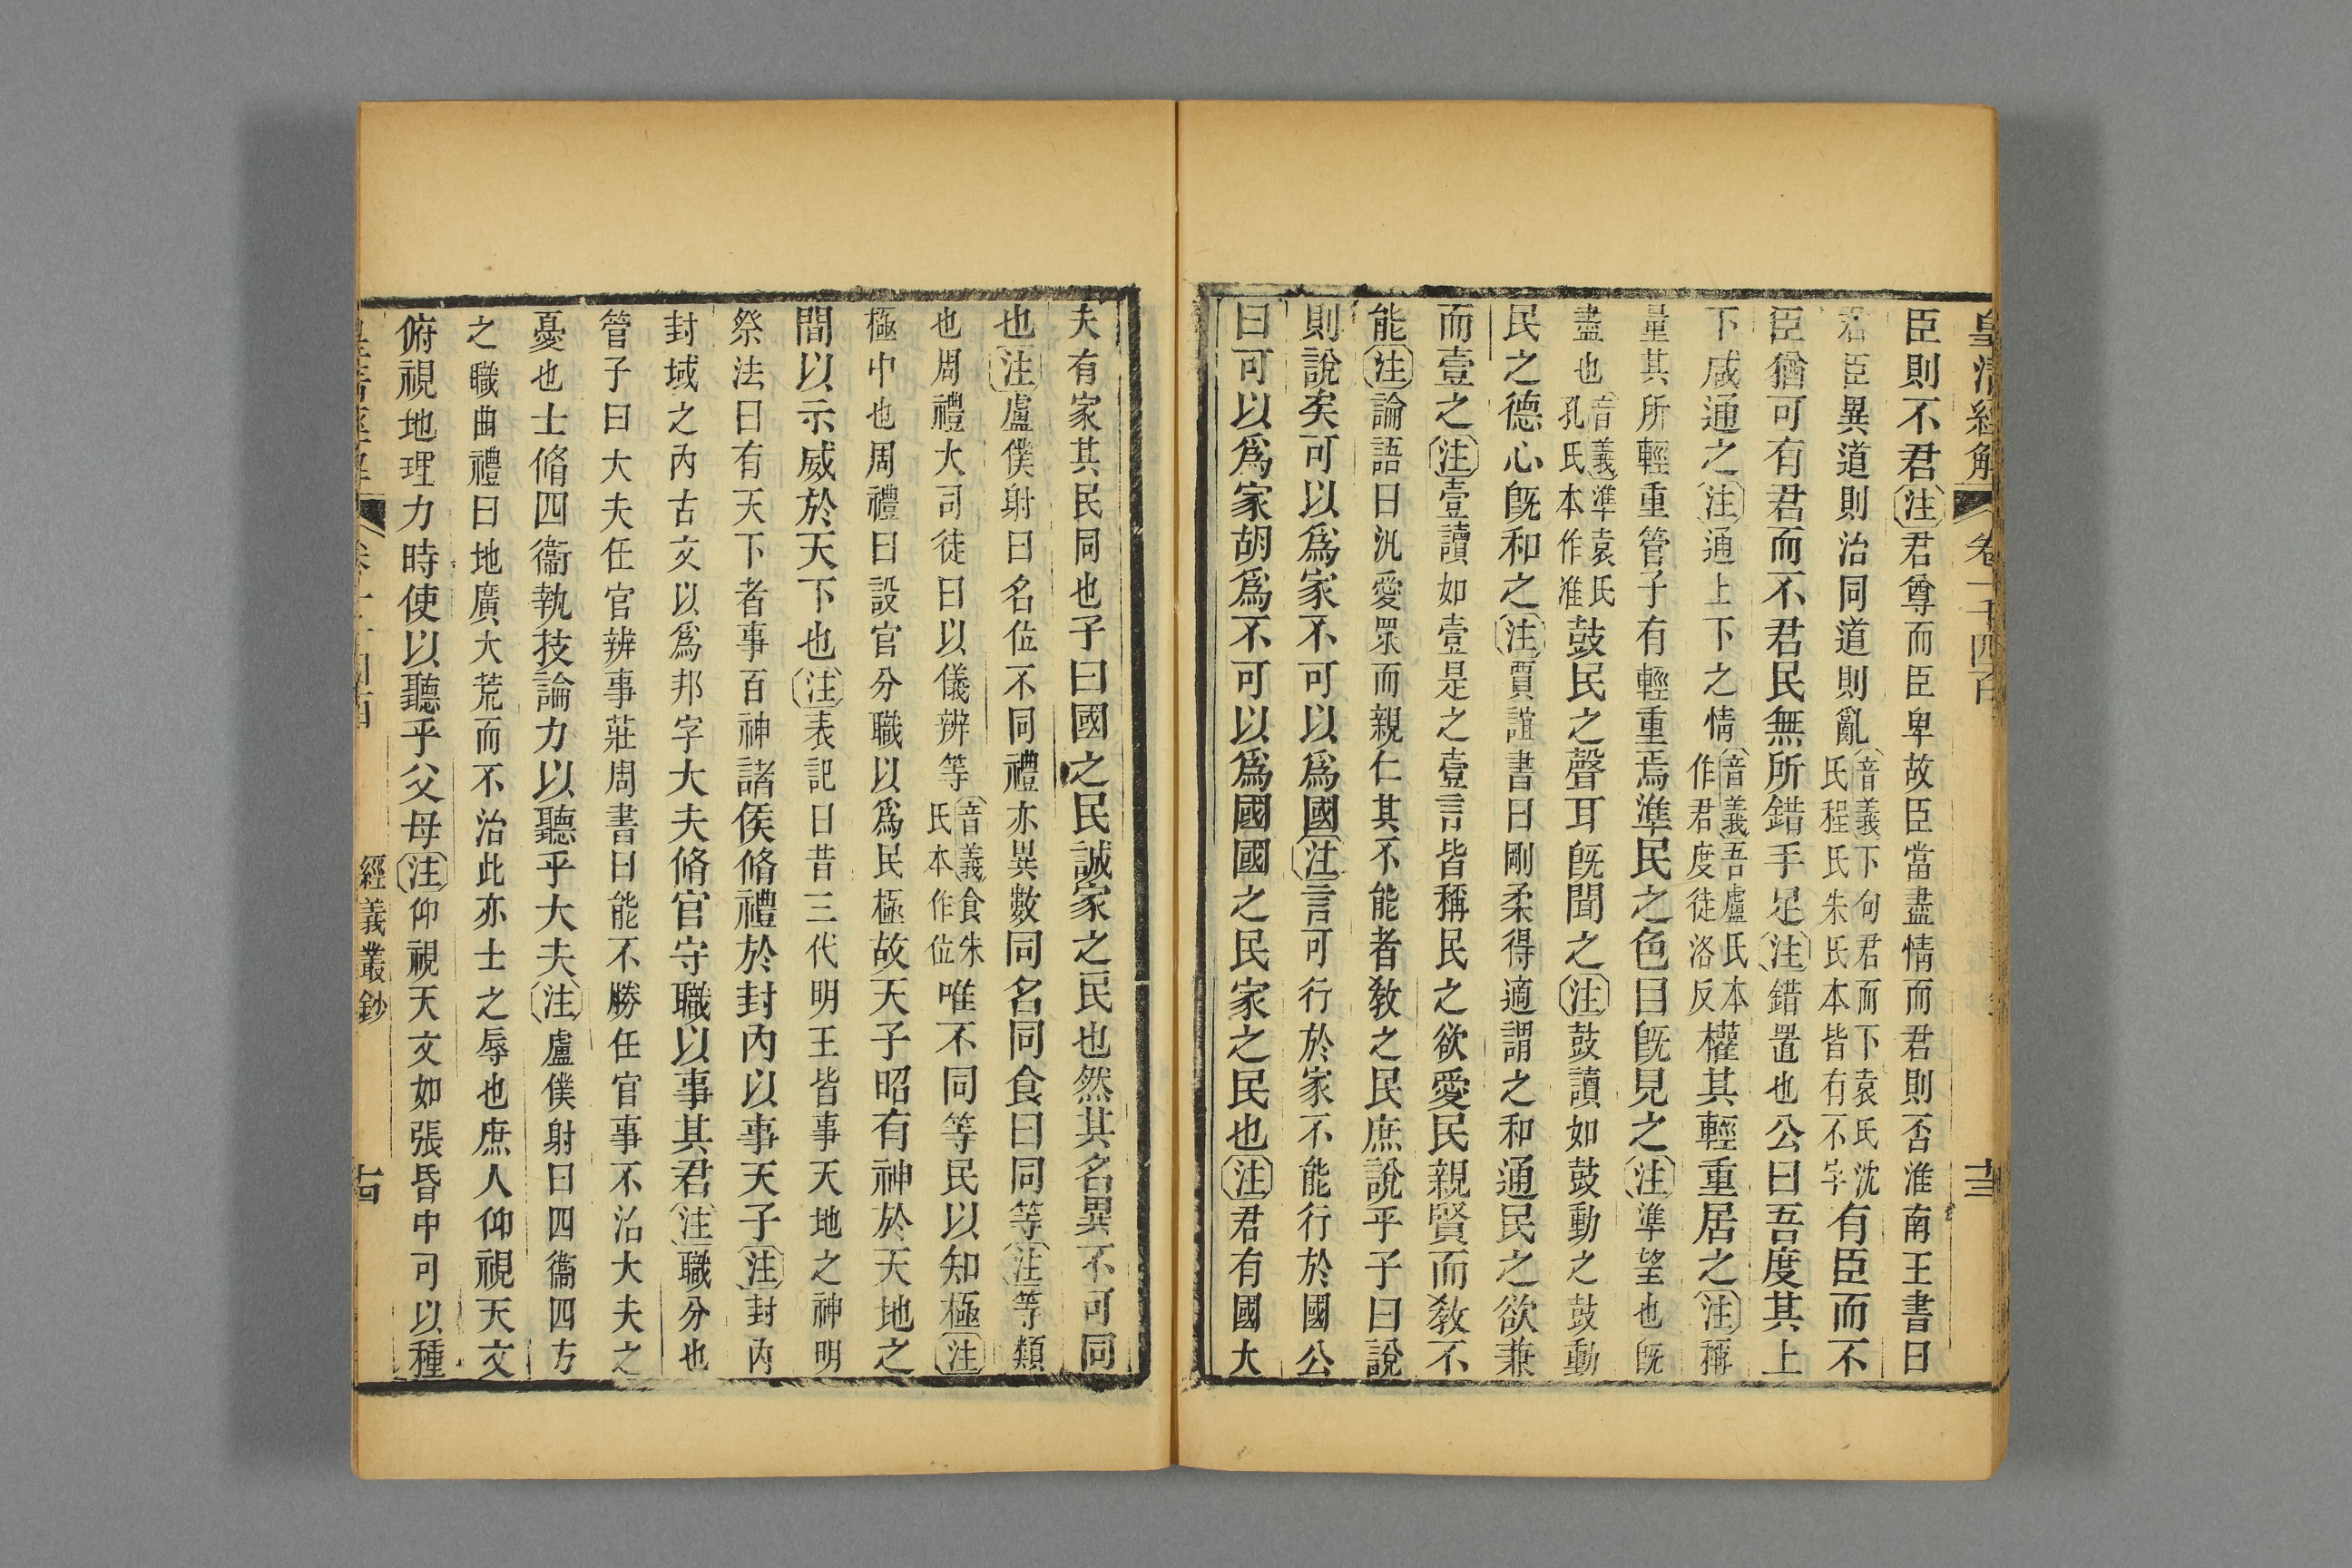 皇清經解 卷一千四百 十三
臣則不君注君尊而臣卑故臣當盡情而君則否淮南王書曰
君臣異道則治同道則亂音義下句君而下袁氏沈氏程氏朱氏本皆有不字有臣而不
臣猶可有君而不君民無所錯手足注錯置也公曰吾度其上
下咸通之注通上下之情音義吾盧氏本作君度徒洛反權其輕重居之注稱
量其所輕重管子有輕重焉準民之色曰既見之注準望也既
盡也音義準袁氏孔氏本作准鼓民之聲耳既聞之注鼓讀如鼓動之鼓動
民之德心既和之注賈誼書曰剛柔得適謂之和通民之欲兼
而壹之注壹讀如壹是之壹言皆稱民之欲愛民親賢而教不
能注論語曰汎愛眾而親仁其不能者教之民庶說乎子曰說
則說矣可以為家不可以為國注言可行於家不能行於國公
曰可以為家胡為不可以為國國之民家之民也注君有國大
夫有家其民同也子曰國之民誠家之民也然其名異不可同
也注盧僕射曰名位不同禮亦異數同名同食曰同等注等類
也周禮大司徒曰以儀辨等音義食朱氏本作位唯不同等民以知極注
極中也周禮曰設官分職以為民極故天子昭有神於天地之
間以示威於天下也注表記曰昔三代明王皆事天地之神明
祭法曰有天下者事百神諸侯脩禮於封內以事天子注封內
封域之內古文以為邦字大夫脩官守職以事其君注職分也
管子曰大夫任官辨事莊周書曰能不勝任官事不治大夫之
憂也士脩四衞執技論力以聽乎大夫注盧僕射曰四衞四方
之職曲禮曰地廣大荒而不治此亦士之辱也庶人仰視天文
俯視地理力時使以聽乎父母注仰視天文如張昏中可以種
經義叢鈔 十四